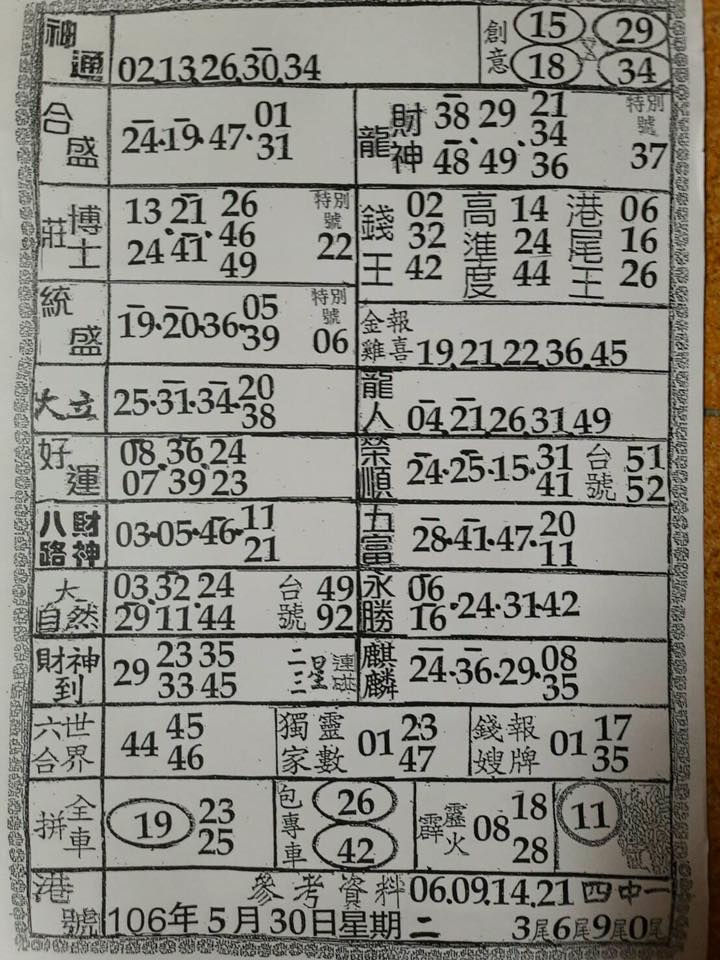 神通 02,13,26,30,34
創意 15 29
18 34
合盛 24·19·47·01
31
財神龍 38 29 21
34
48 49 36
特別號 37
博士莊 13 21 26
46
24 41 49
特別號 22
錢王 02 32 42
高進度 14 24 44
港尾王 06 16 26
統盛 19·20·36·05
39
特別號 06
金雞報喜 19,21,22,36,45
大立 25·31·34·20
38
龍人 04,21,26,31,49
好運 08,36,24
07 39 23
榮順 24·25·15·31
41
台號 51
52
八路財神 03·05·46·11
21
五富 28·41·47·20
11
大自然 03,32,24
29 11 44
台號 49
92
永勝 06
16·24·31·42
財神到 29 23 35
33 45
二三星連碰
麒麟 24·36·29·08
35
六合世界 44 45
46
獨家靈數 01 23
47
錢嫂報牌 01 17
35
全車拼 19 23
25
包專車 26
42
霹靂火 08 18
28
11
港號 參考資料 06.09.14.21 四中一
106年5月30日星期二 3尾6尾9尾0尾